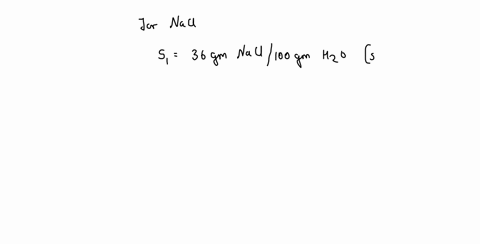 For NaCl
S₁ = 36 gm NaCl/100 gm H₂O (s